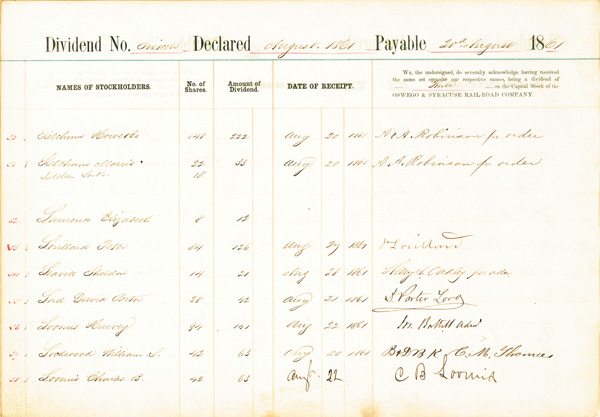 Dividend No. Declared August 1861 Payable 20th August 1861
NAMES OF STOCKHOLDERS. No. of Shares. Amount of Dividend. DATE OF RECEIPT. We, the undersigned, do severally acknowledge having received
the same set opposite our respective names, being a dividend of
on the Capital Stock of the
OSWEGO & SYRACUSE RAIL-ROAD COMPANY.
50 Ketchum 148 222 Aug 20 1861 A. A. Robinson pr order
51 Ketchum Morris 22 33 Aug 20 1861 A. A. Robinson pr order
18
52 Lawrence Elizabeth 8 12
53 Lorillard Peter 84 126 Aug 29 1861 P Lorillard
54 Sheldon 14 21 Aug 28 1861
55 Lord David Porter 28 42 Aug 21 1861 D Porter Lord
56 Loomis Harvey 94 141 Aug 22 1861
57 Lockwood William S. 42 63 Aug 20 1861 C. M. Thomas
58 Loomis Charles B. 42 63 Augt 22 C B Loomis